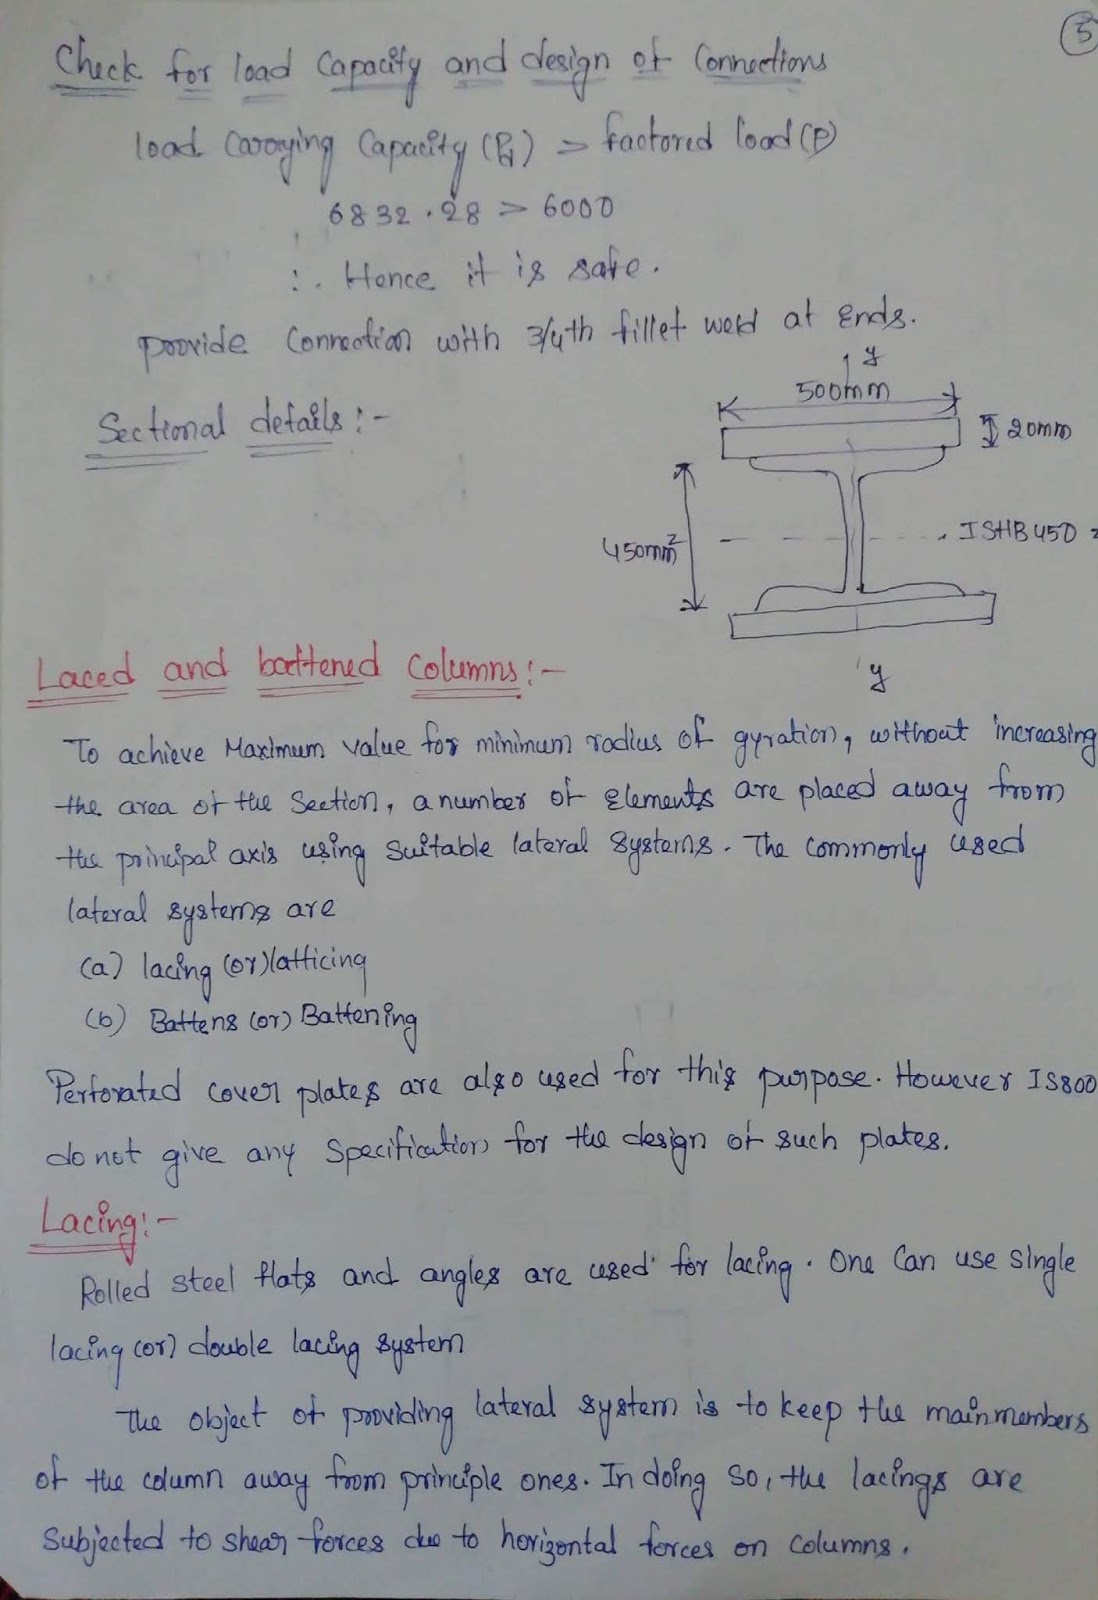 5
Check for load Capacity and design of Connections
load Carrying Capacity (Pd) > factored load (P)
6832.28 > 6000
∴ Hence it is safe.
provide Connection with 3/4th fillet weld at Ends.
Sectional details:-
y
500mm
20mm
450mm²
ISHB450
y
Laced and battened Columns:-
To achieve Maximum value for minimum radius of gyration, without increasing
the area of the Section, a number of Elements are placed away from
the principal axis using suitable lateral systems. The commonly used
lateral systems are
(a) lacing (or) latticing
(b) Battens (or) Battening
Perforated cover plates are also used for this purpose. However IS800
do not give any Specification for the design of such plates.
Lacing:-
Rolled steel flats and angles are used for lacing. One Can use single
lacing (or) double lacing system
The object of providing lateral system is to keep the main members
of the column away from principle ones. In doing so, the lacings are
subjected to shear forces due to horizontal forces on columns.